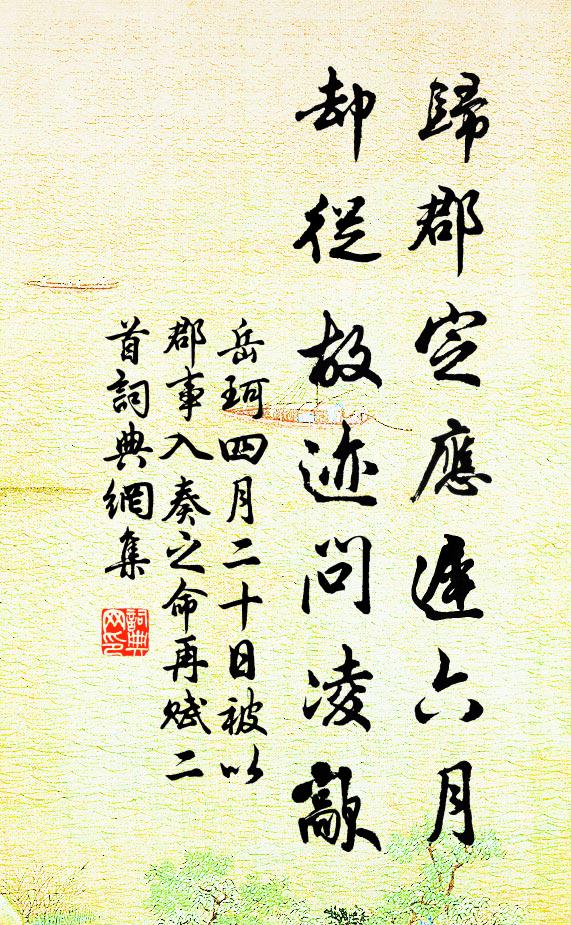 歸郡定應遲六月
却從故迹問凌歊
岳珂四月二十日被以
郡事入奏之命再赋二
首詞典網集
詞典
网印